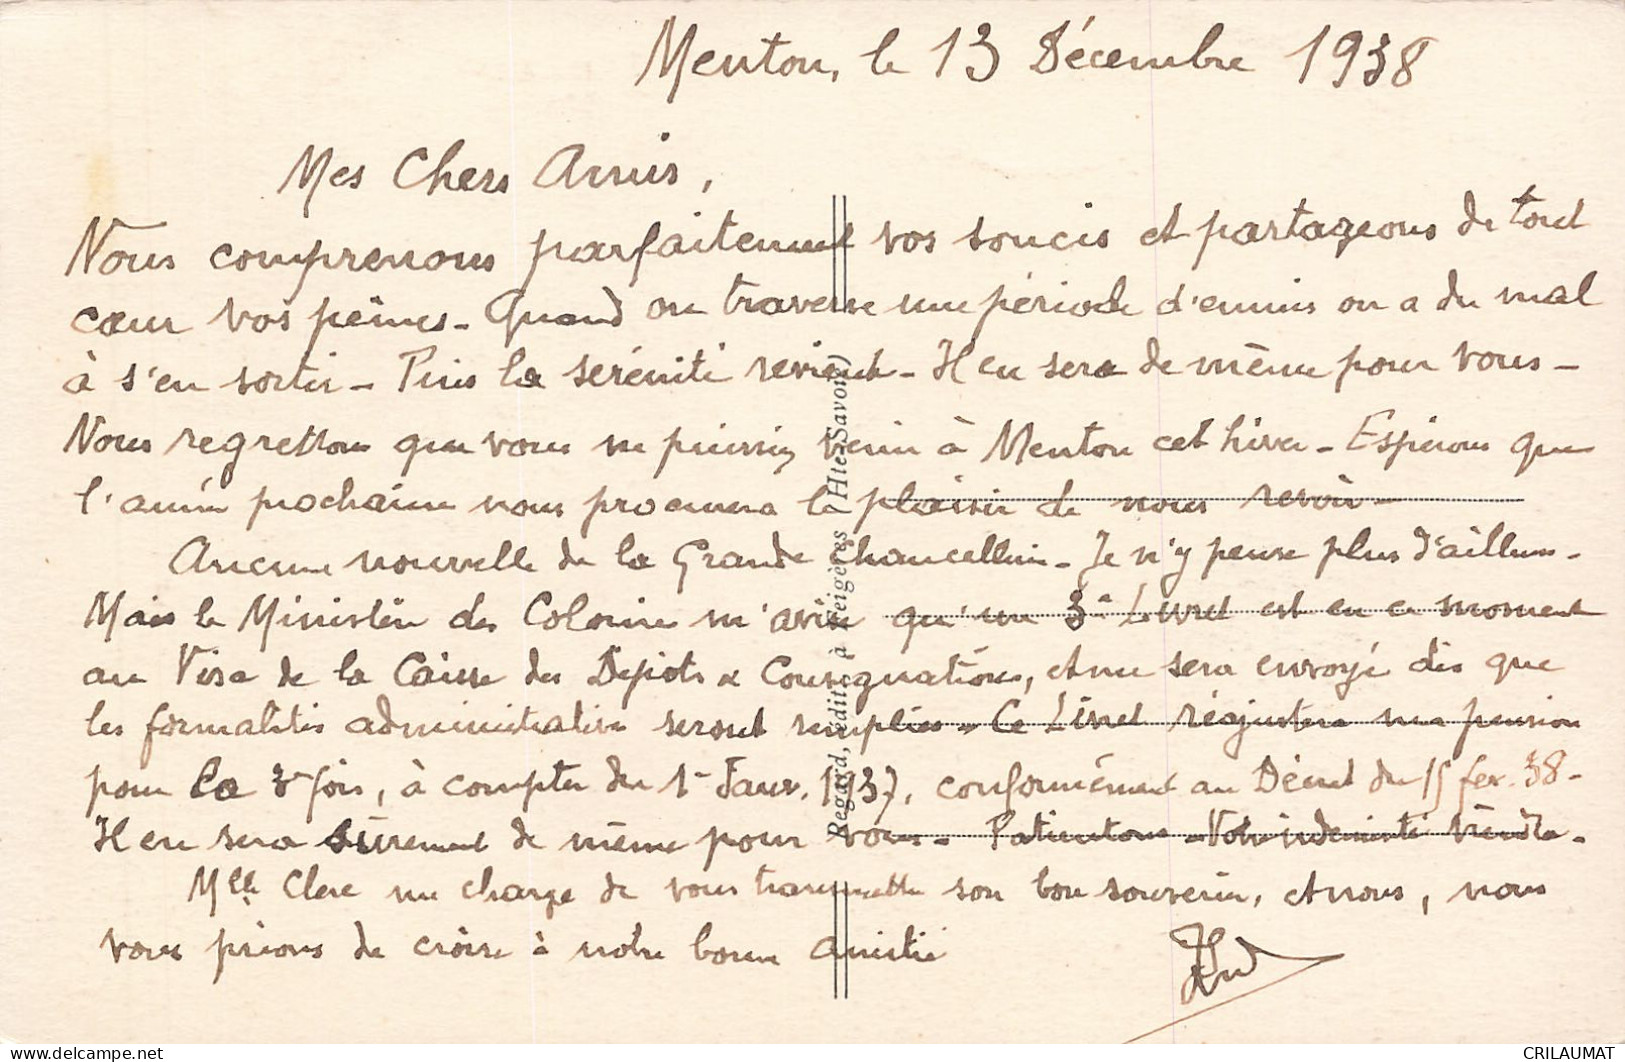 Menton, le 13 Décembre 1938
Mes Chers Amis,
Nous comprenons parfaitement vos soucis et partageons de tout
cœur vos peines - Quand on traverse une période d'ennuis on a du mal
à s'en sortir - Puis la sérénité revient - Il en sera de même pour vous -
Nous regrettons que vous ne puissiez venir à Menton cet hiver - Espérons que
l'année prochaine nous procurera le plaisir de nous revoir -
Aucune nouvelle de la Grande Chancellerie - Je n'y pense plus d'ailleurs -
Mais le Ministère des Colonies m'avise qu'un 3e Livret est en ce moment
au Visa de la Caisse des Dépôts & Consignations, et me sera envoyé dès que
les formalités administratives seront remplies - Ce Livret réajustera ma pension
pour la 3e fois, à compter du 1er Janv. 1937, conformément au Décret du 15 fev. 38 -
Il en sera sûrement de même pour vous - Patientons - Votre indemnité viendra -
Mlle Clerc me charge de vous transmettre son bon souvenir, et nous, nous
vous prions de croire à notre bonne amitié
Regard, édit. à Feigères (Hte-Savoie)
CRILAUMAT